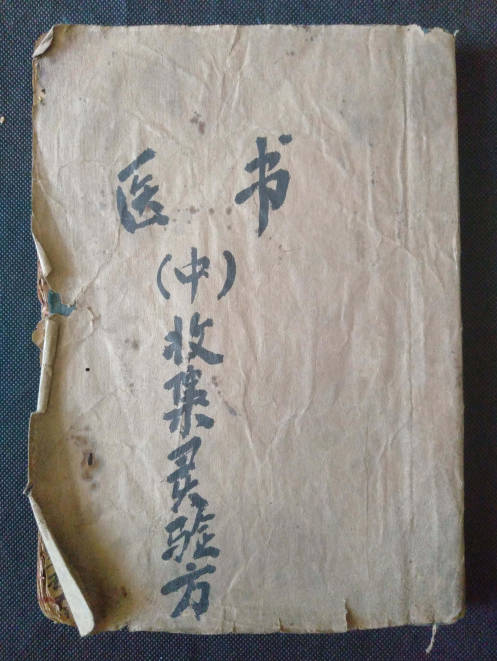 医书
（中）收集灵验方